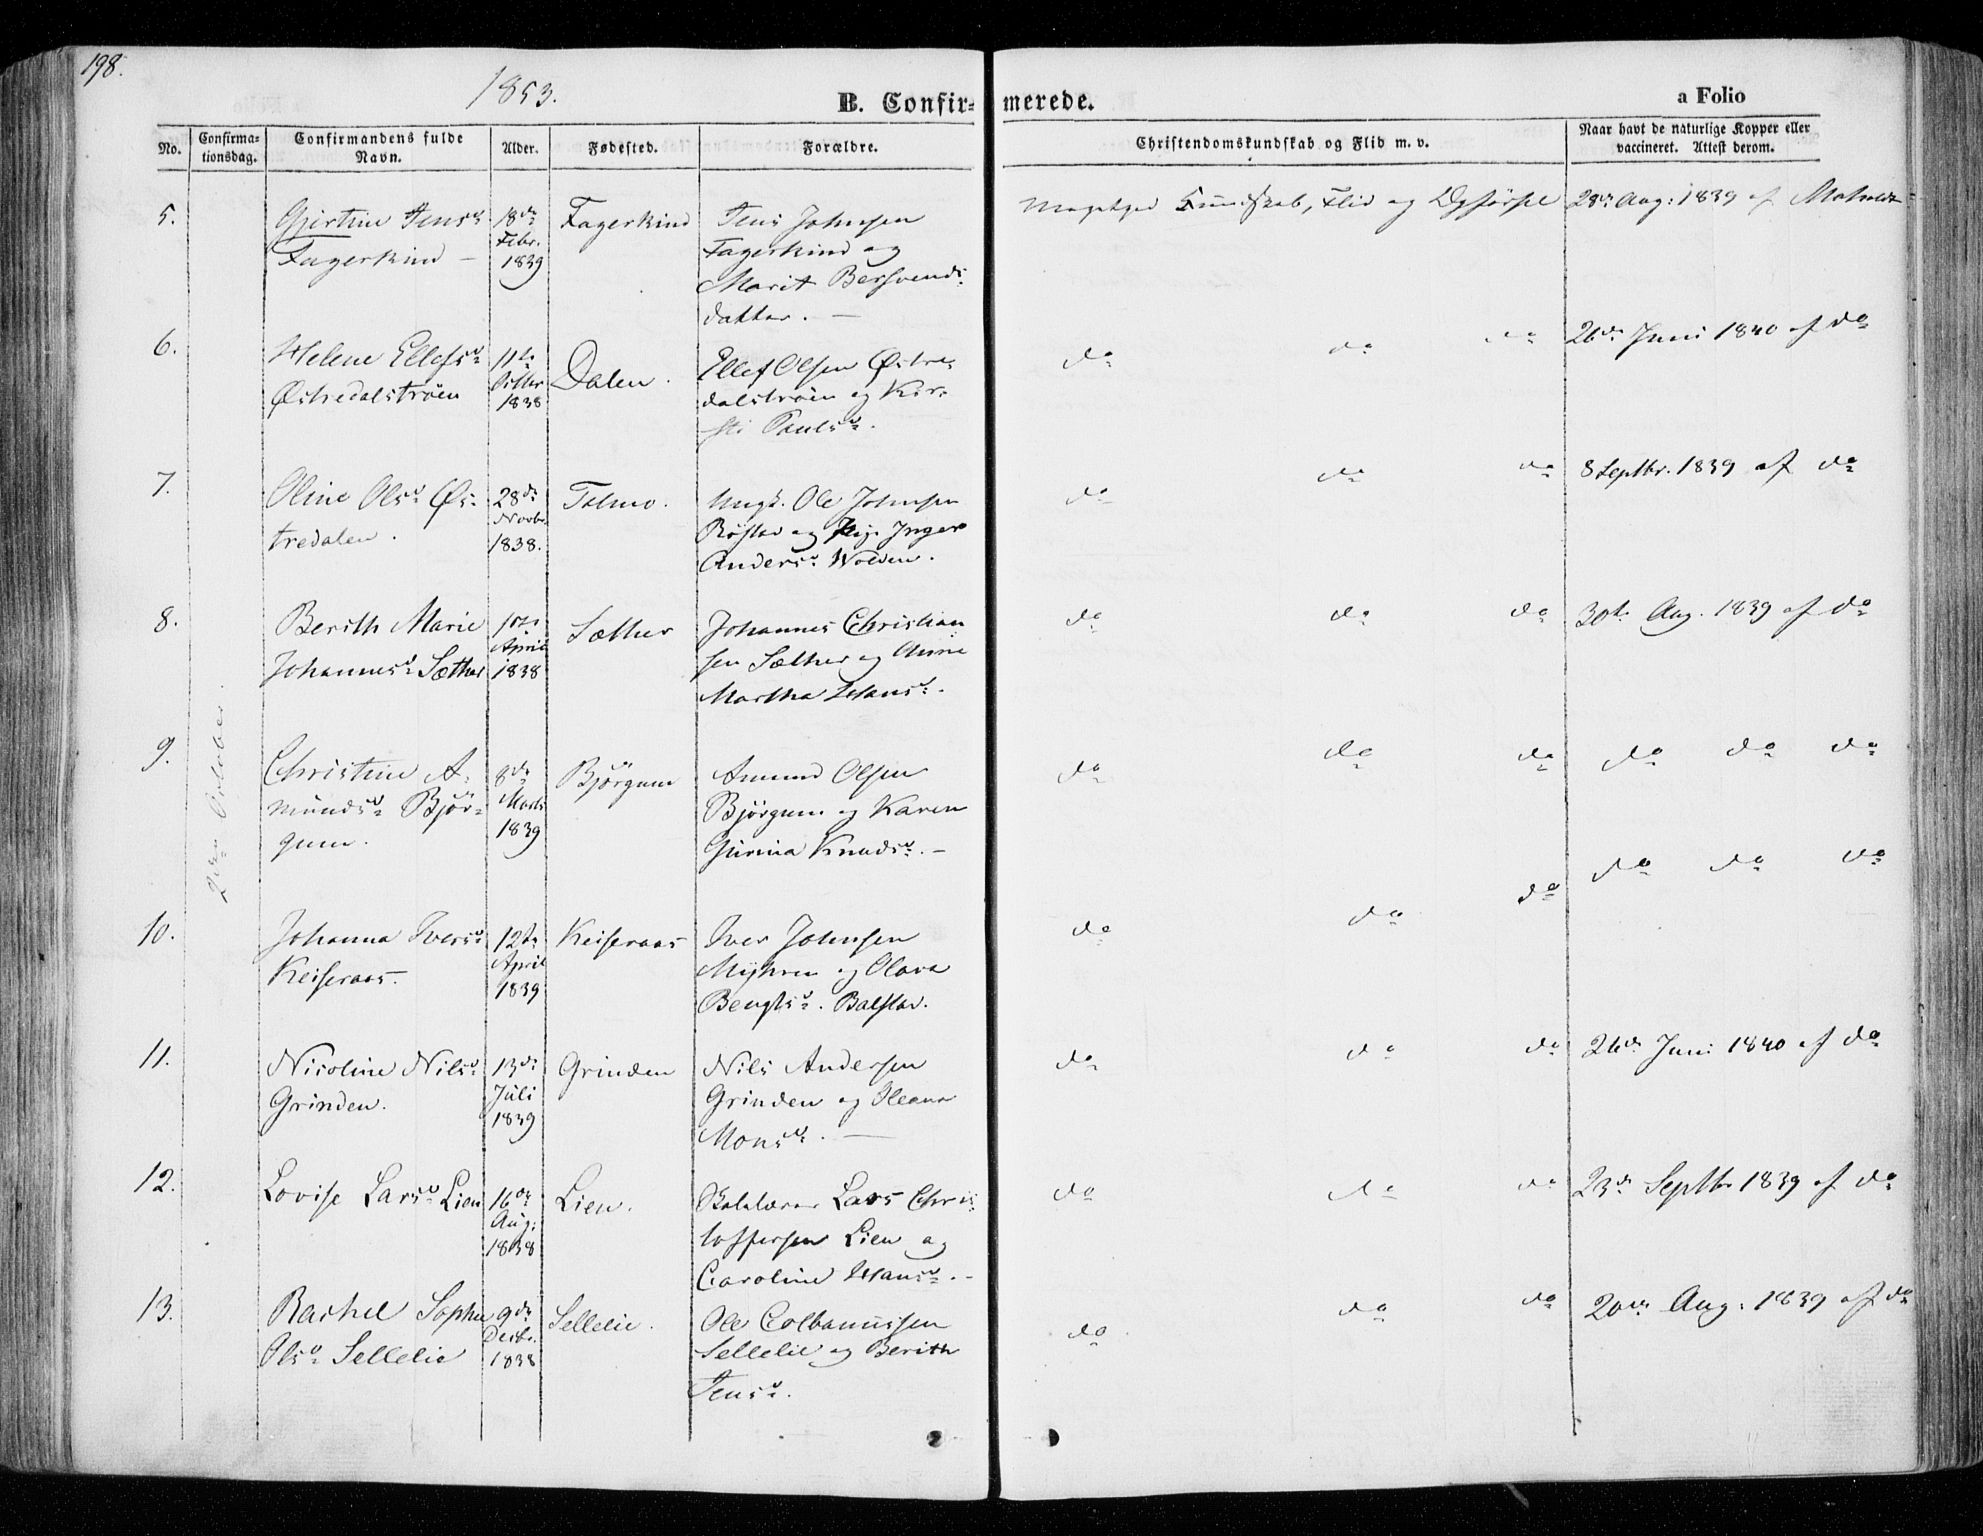 198.
1853.
B. Confirmerede.
a Folio
No.
Confirmationsdag.
Confirmandens fulde Navn.
Alder.
Fødested.
Forældre.
Christendomskundskab og Flid m. v.
Naar havt de naturlige Kopper eller vaccineret. Attest derom.
2den October.
5.
Gjertine Jensd.
Fagerkind –
18de
Febr.
1839
Fagerkind
Jens Johnsen
Fagerkind og
Marit Bersvends-
datter. –
Kundskab, Flid og
28de Aug: 1839 af
6.
Helene Ellefsd.
Østredalstrøen
11te
1838
Dalen.
Ellef Olsen Østre-
dalstrøen og Kir-
sti Paulsd.
do do do
26de Juni 1840 af do
7.
Oline Olsd. Øs-
tredalen.
28de
Novbr.
1838.
Tolmo.
Ungk. Ole Johnsen
Røstad og Pig. Inger
Andersd. Wolden.
do do do
8 Septbr. 1839 af do
8.
Berith Marie
Johannesd. Sæther
10de
April
1838
Sæther
Johannes Christian-
sen Sæther og Anne
Martha Hansd.
do do do
30te Aug. 1839 af do
9.
Christine A-
mundsd. Bjør-
gum.
8de
Marts
1839
Bjørgum
Amund Olsen
Bjørgum og Karen
Gurina Knudsd. –
do do do
do do do
10.
Johanna Iversd.
Keiseraas.
12te
April
1839
Keiseraas
Iver Johnsen
Myhren og Olava
Bengtsd. Balstad.
do do do
do do do
11.
Nicoline Nilsd.
Grinden.
13de
Juli
1839
Grinden
Nils Andersen
Grinden og Oleana
Monsd. –
do do do
26de Juni 1840 af do
12.
Lovise Larsd. Lien
16de
Aug:
1838
Lien.
Skolelærer Lars Chris-
toffersen Lien og
Caroline Hansd. –
do do do
23de Septbr 1839 af do
13.
Rachel Sophie
Olsd. Sellelie
9de
Decbr.
1838
Sellelie.
Ole Colbanussen
Sellelie og Berith
Jensd.
do do do
20de Aug: 1839 af do